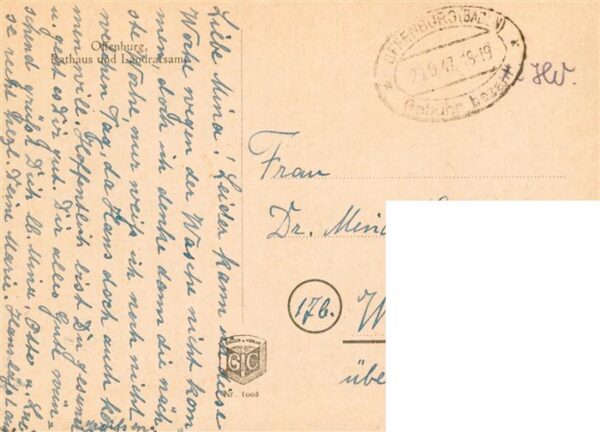 Offenburg,
Rathaus und Landratsamt
OFFENBURG (BADEN)
16-19
Gebühr bezahlt
Liebe Mina! Leider kann ich diese
Woche wegen der Wäsche nicht kom-
men, doch ich denke dann die näch-
ste Woche nur weiß ich noch nicht
den Tag, da Hans doch auch
men will. Hoffentlich bist Du gesund
u. geht es Dir gut. Dir alles Gute wün-
schend grüßt Dich
se recht herzl. Deine Marie. Hans
Frau
Dr.
17b.
GC
Nr. 1008